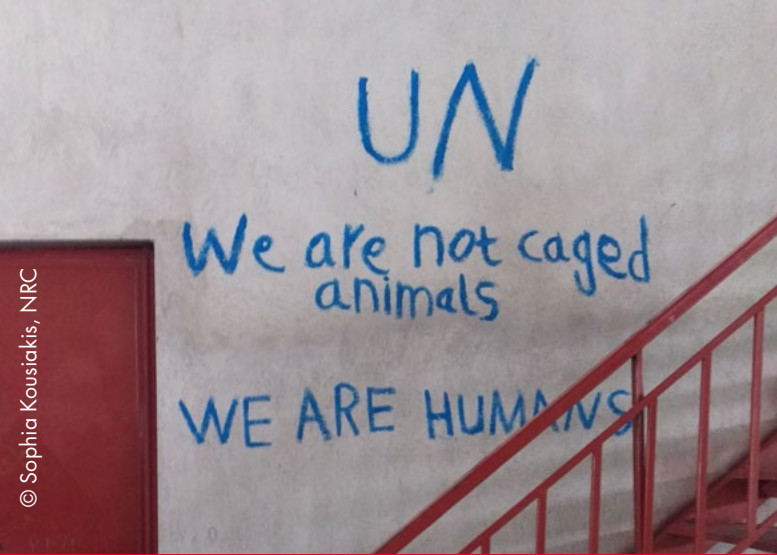 UN
We are not caged
animals
WE ARE HUMANS
© Sophia Kousiakis, NRC